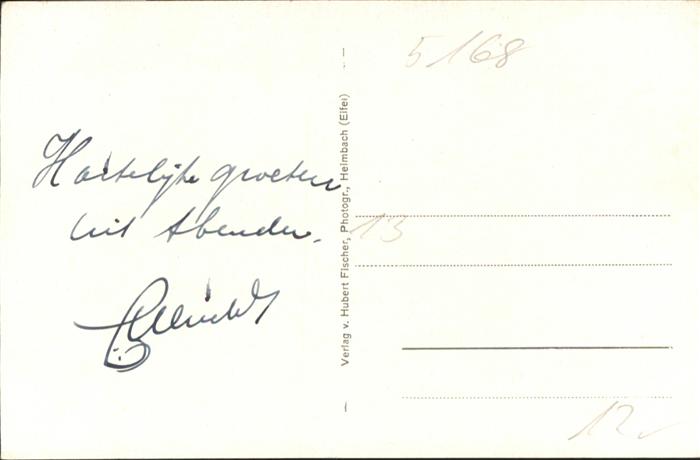 Hartelijke groeten
uit Abenden.
Verlag v. Hubert Fischer, Photogr., Heimbach (Eifel)
5/68
13
12